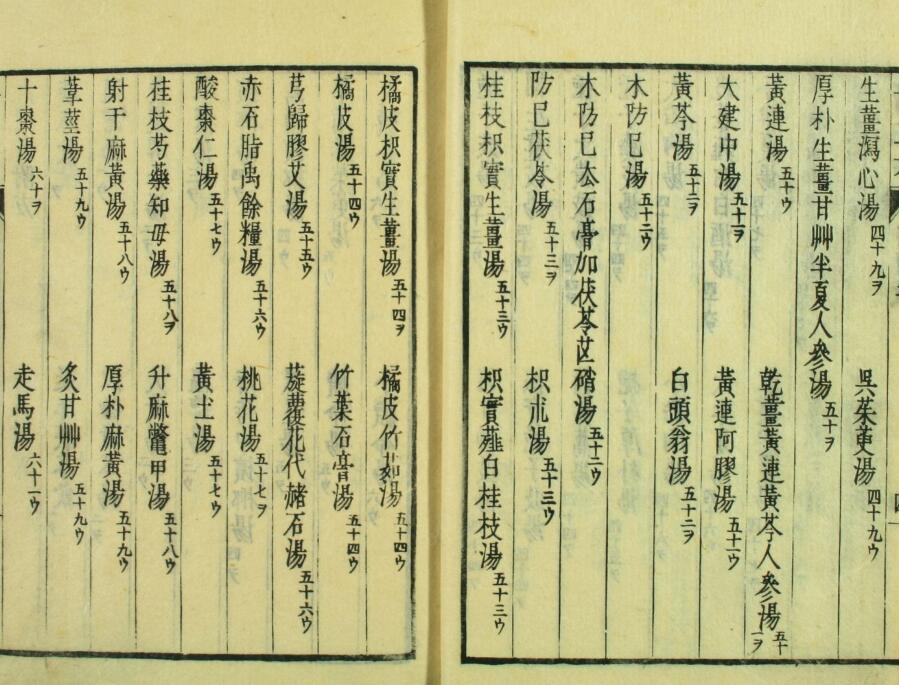 生薑瀉心湯 四十九ヲ 呉茱萸湯 四十九ウ
厚朴生薑甘艸半夏人參湯 五十ヲ
黃連湯 五十ウ 乾薑黃連黃芩人參湯 五十一ヲ
大建中湯 五十一ヲ 黃連阿膠湯 五十一ウ
黃芩湯 五十二ヲ 白頭翁湯 五十二ヲ
木防已湯 五十二ウ
木防已厺石膏加茯苓芒硝湯 五十二ウ
防已茯苓湯 五十三ヲ 枳朮湯 五十三ウ
桂枝枳實生薑湯 五十三ウ 枳實薤白桂枝湯 五十三ウ
橘皮枳實生薑湯 五十四ヲ 橘皮竹茹湯 五十四ウ
橘皮湯 五十四ウ 竹葉石膏湯 五十四ウ
芎歸膠艾湯 五十五ウ 蕿覆花代赭石湯 五十六ウ
赤石脂禹餘糧湯 五十六ウ 桃花湯 五十七ヲ
酸棗仁湯 五十七ウ 黃土湯 五十七ウ
桂枝芍藥知母湯 五十八ヲ 升麻鼈甲湯 五十八ウ
射干麻黃湯 五十八ウ 厚朴麻黃湯 五十九ウ
葦莖湯 五十九ウ 炙甘艸湯 五十九ウ
十棗湯 六十ヲ 走馬湯 六十一ウ